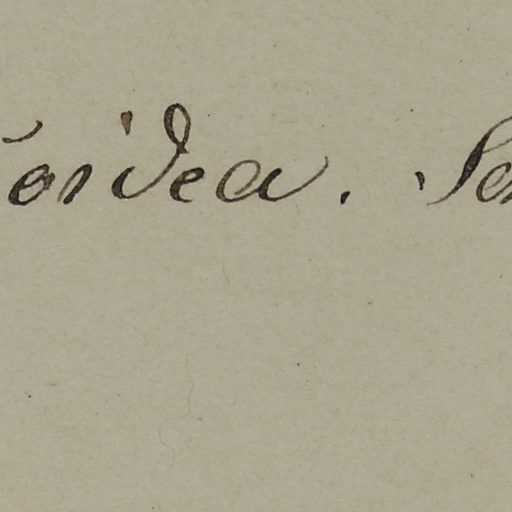 oidea. Se